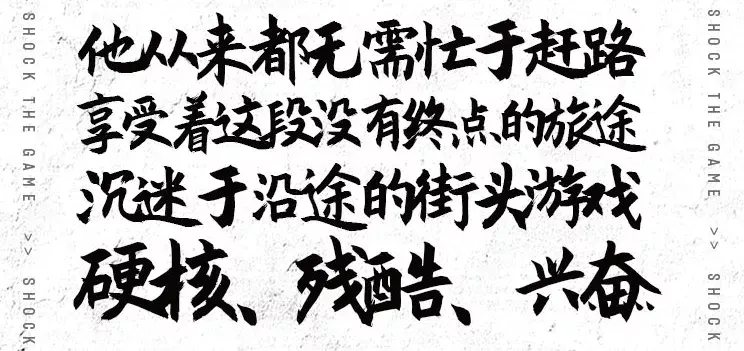 他从来都无需忙于赶路
享受着这段没有终点的旅途
沉迷于沿途的街头游戏
硬核、残酷、兴奋..
SHOCK THE GAME >> SHOCK
SHOCK THE GAME >> SHOCK